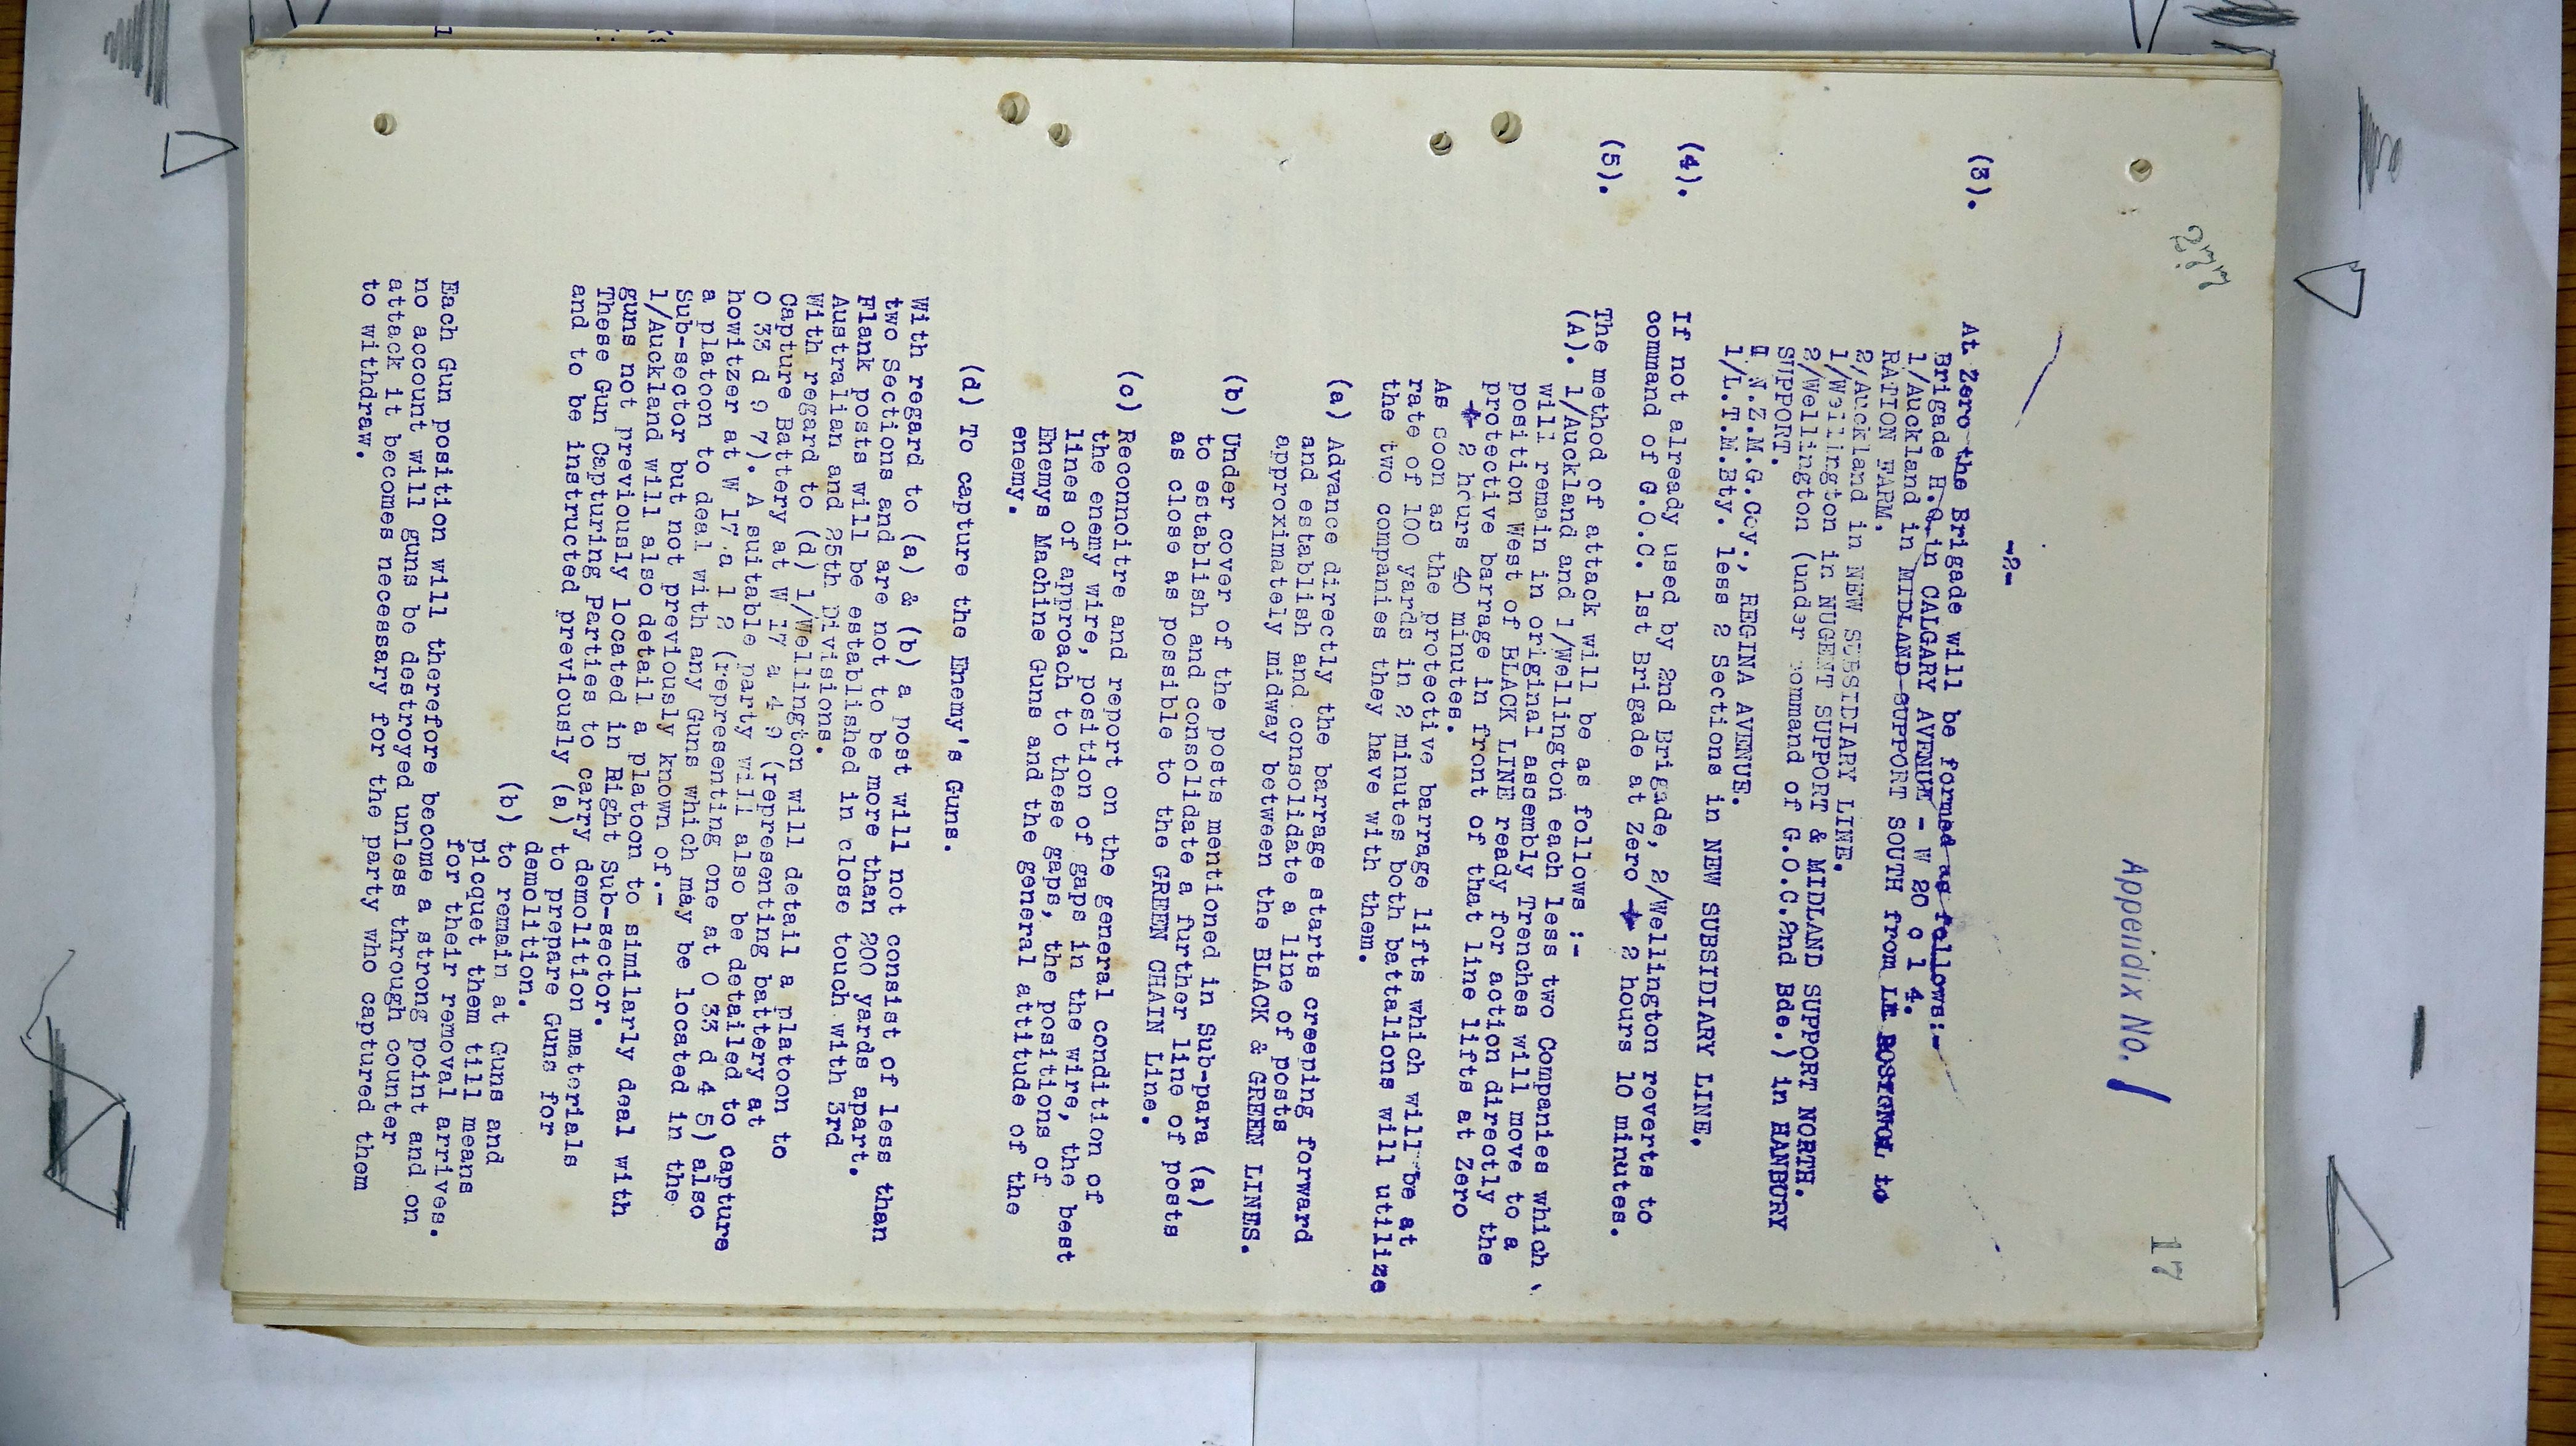 Appendix No. 1
17
-2-
(3). At Zero the Brigade will be formed as follows:-
Brigade H.Q. in CALGARY AVENUE - W 20 c 1 4.
1/Auckland in MIDLAND SUPPORT SOUTH from LE ROSIGNOL to
RATION FARM.
2/Auckland in NEW SUBSIDIARY LINE.
1/Wellington in NUGENT SUPPORT & MIDLAND SUPPORT NORTH.
2/Wellington (under command of G.O.C.2nd Bde.) in HANBURY
SUPPORT.
N.Z.M.G.Coy., REGINA AVENUE.
1/L.T.M.Bty. less 2 Sections in NEW SUBSIDIARY LINE.
(4). If not already used by 2nd Brigade, 2/Wellington reverts to
command of G.O.C. 1st Brigade at Zero + 2 hours 10 minutes.
(5). The method of attack will be as follows :-
(A). 1/Auckland and 1/Wellington each less two Companies which
will remain in original assembly Trenches will move to a
position West of BLACK LINE ready for action directly the
protective barrage in front of that line lifts at Zero
+ 2 hours 40 minutes.
As soon as the protective barrage lifts which will be at
rate of 100 yards in 2 minutes both battalions will utilize
the two companies they have with them.
(a) Advance directly the barrage starts creeping forward
and establish and consolidate a line of posts
approximately midway between the BLACK & GREEN LINES.
(b) Under cover of the posts mentioned in Sub-para (a)
to establish and consolidate a further line of posts
as close as possible to the GREEN CHAIN Line.
(c) Reconnoitre and report on the general condition of
the enemy wire, position of gaps in the wire, the best
lines of approach to these gaps, the positions of
Enemys Machine Guns and the general attitude of the
enemy.
(d) To capture the Enemy's Guns.
With regard to (a) & (b) a post will not consist of less than
two Sections and are not to be more than 200 yards apart.
Flank posts will be established in close touch with 3rd
Australian and 25th Divisions.
With regard to (d) 1/Wellington will detail a platoon to
Capture Battery at W 17 a 4 9 (representing battery at
O 33 d 9 7). A suitable party will also be detailed to capture
howitzer at W 17 a 1 2 (representing one at O 33 d 4 5) also
a platoon to deal with any Guns which may be located in the
Sub-sector but not previously known of.-
1/Auckland will also detail a platoon to similarly deal with
guns not previously located in Right Sub-sector.
These Gun Capturing Parties to carry demolition materials
and to be instructed previously (a) to prepare Guns for
demolition.
(b) to remain at Guns and
picquet them till means
for their removal arrives.
Each Gun position will therefore become a strong point and on
no account will guns be destroyed unless through counter
attack it becomes necessary for the party who captured them
to withdraw.